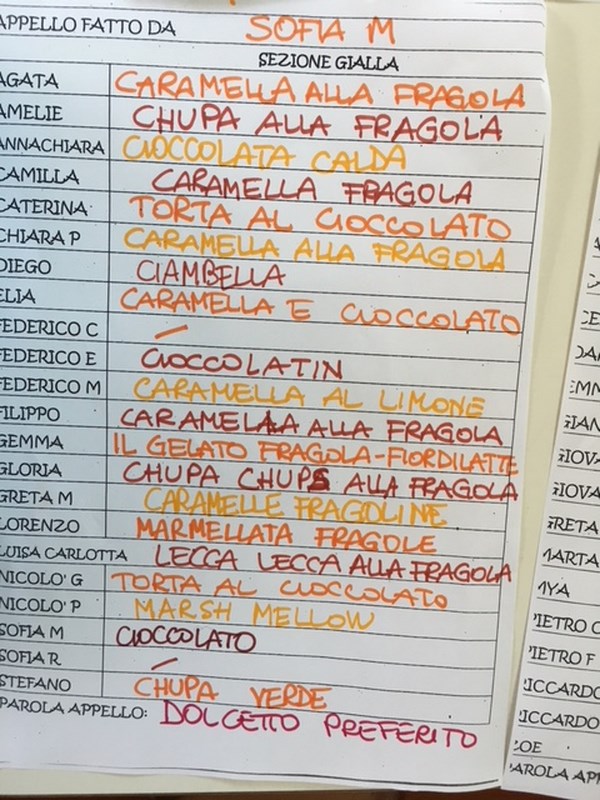 APPELLO FATTO DA SOFIA M
SEZIONE GIALLA
AGATA CARAMELLA ALLA FRAGOLA
AMELIE CHUPA ALLA FRAGOLA
ANNACHIARA CIOCCOLATA CALDA
CAMILLA CARAMELLA FRAGOLA
CATERINA TORTA AL CIOCCOLATO
CHIARA P CARAMELLA ALLA FRAGOLA
DIEGO CIAMBELLA
ELIA CARAMELLA E CIOCCOLATO
FEDERICO C /
FEDERICO E CIOCCOLATIN
FEDERICO M CARAMELLA AL LIMONE
FILIPPO CARAMELLA ALLA FRAGOLA
GEMMA IL GELATO FRAGOLA-FIORDILATTE
GLORIA CHUPA CHUPS ALLA FRAGOLA
GRETA M CARAMELLE FRAGOLINE
LORENZO MARMELLATA FRAGOLE
LUISA CARLOTTA LECCA LECCA ALLA FRAGOLA
NICOLO' G TORTA AL CIOCCOLATO
NICOLO' P MARSH MELLOW
SOFIA M CIOCCOLATO
SOFIA R /
STEFANO CHUPA VERDE
PAROLA APPELLO: DOLCETTO PREFERITO